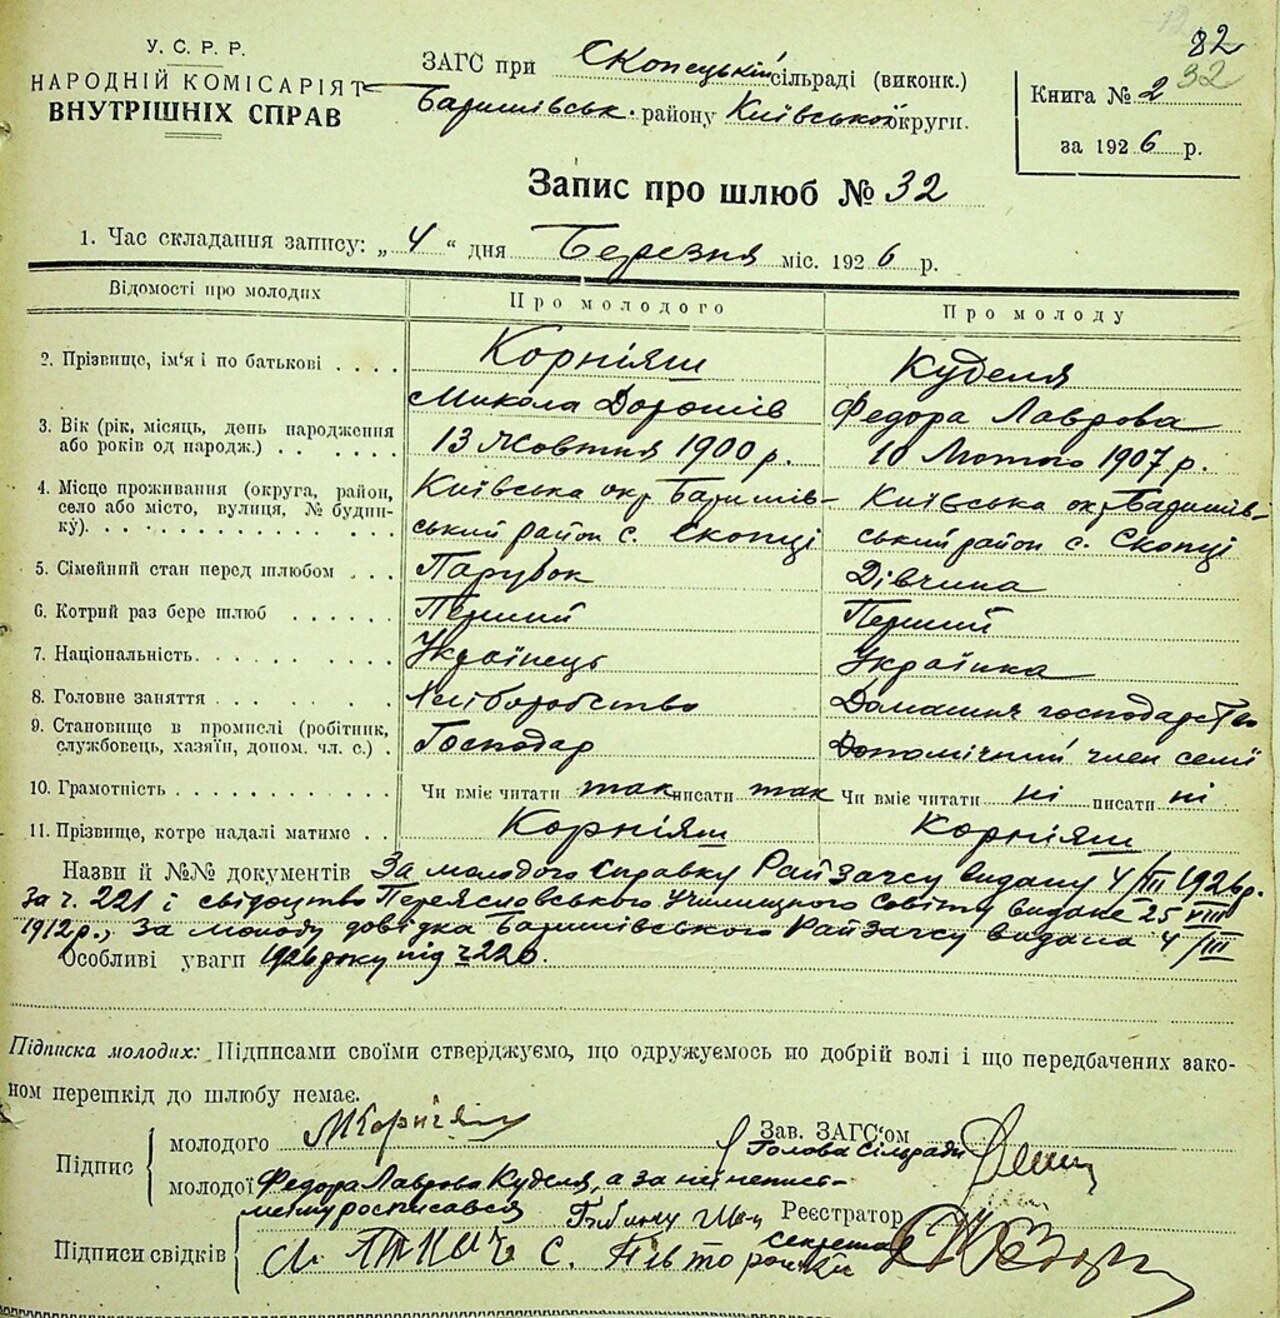 82
32
У. С. Р. Р.
НАРОДНІЙ КОМІСАРІЯТ
ВНУТРІШНІХ СПРАВ
ЗАГС при Скопецькій сільраді (виконк.)
Баришівськ. району Київської округи.
Книга № 2
за 1926 р.
Запис про шлюб № 32
1. Час складання запису: „ 4 “ дня Березня міс. 1926 р.
Відомості про молодих
Про молодого
Про молоду
2. Прізвище, ім'я і по батькові . . . .
Корніяш
Микола Дорошів
Куделя
Федора Лаврова
3. Вік (рік, місяць, день народження
або років од народж.) . . . . . .
13 Жовтня 1900 р.
10 Лютого 1907 р.
4. Місце проживання (округа, район,
село або місто, вулиця, № будин-
ку). . . . . . . . . . . . .
Київська окр Баришів-
ський район с. Скопці
Київська окр Баришів-
ський район с. Скопці
5. Сімейний стан перед шлюбом . . .
Парубок
Дівчина
6. Котрий раз бере шлюб . . . . . .
Перший
Перший
7. Національність. . . . . . . . . .
Українець
Українка
8. Головне заняття . . . . . . . . .
Хліборобство
Домашнє господарство
9. Становище в промислі (робітник,
службовець, хазяїн, допом. чл. с.) .
Господар
Допомічний член семї
10. Грамотність . . . . . . . . . . . .
Чи вміє читати так писати так
Чи вміє читати ні писати ні
11. Прізвище, котре надалі матиме . .
Корніяш
Корніяш
Назви й №№ документів За молодого справку РайЗагсу видану 4/III 1926р.
за ч. 221 і свідоцтво Переяславського Училищного Совіту видане 25 VIII
1912 р., За молоду довідка Баришівського РайЗагсу видана 4/III
Особливі уваги 1926 року під ч 220.
Підписка молодих: Підписами своїми стверджуємо, що одружуємось по добрій волі і що передбачених зако-
ном перешкід до шлюбу немає.
Підпис
молодого МКорніяш
молодої Федора Лаврова Куделя, а за ні непись-
менну росписався
Зав. ЗАГС'ом
Голова Сілради
Реєстратор
секретар
Підписи свідків
С. Півторацький